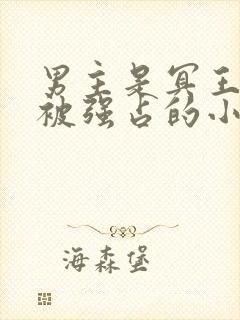 男主是冥王
被强占的小
海森堡